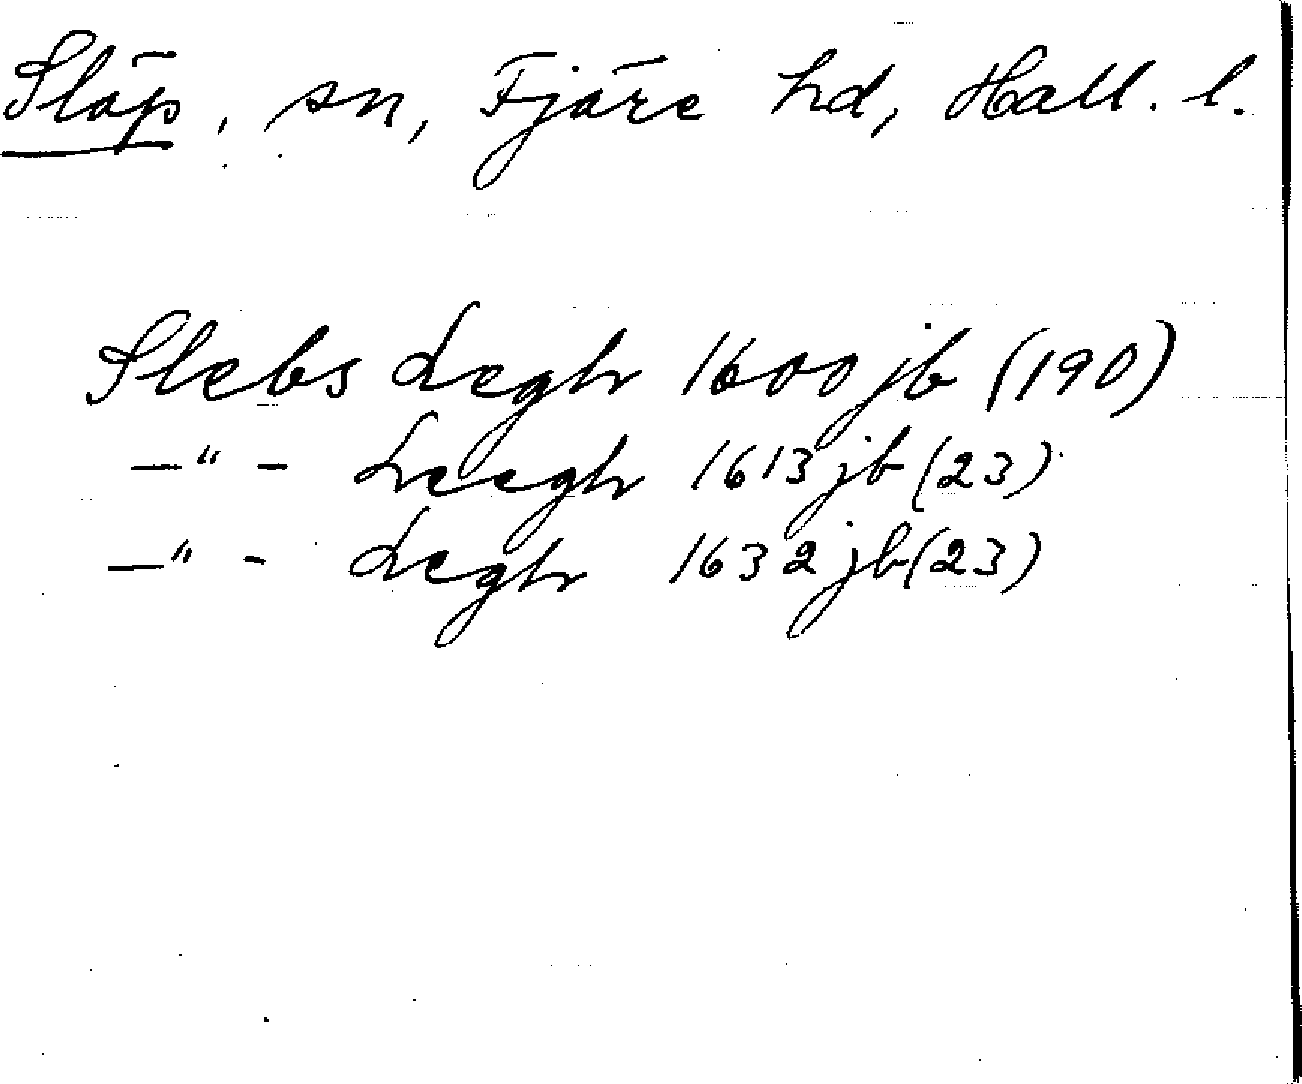 Släp, sn, Fjäre hd, Hall. l.
Slebs Legh 1600 jb (190)
—"— Leegh 1613 jb (23)
—"— Legh 1632 jb (23)